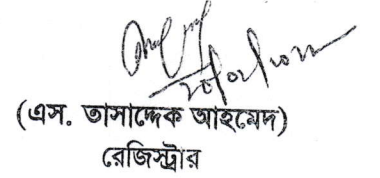 (এস. তাসাদ্দেক আহমেদ)
রেজিস্ট্রার